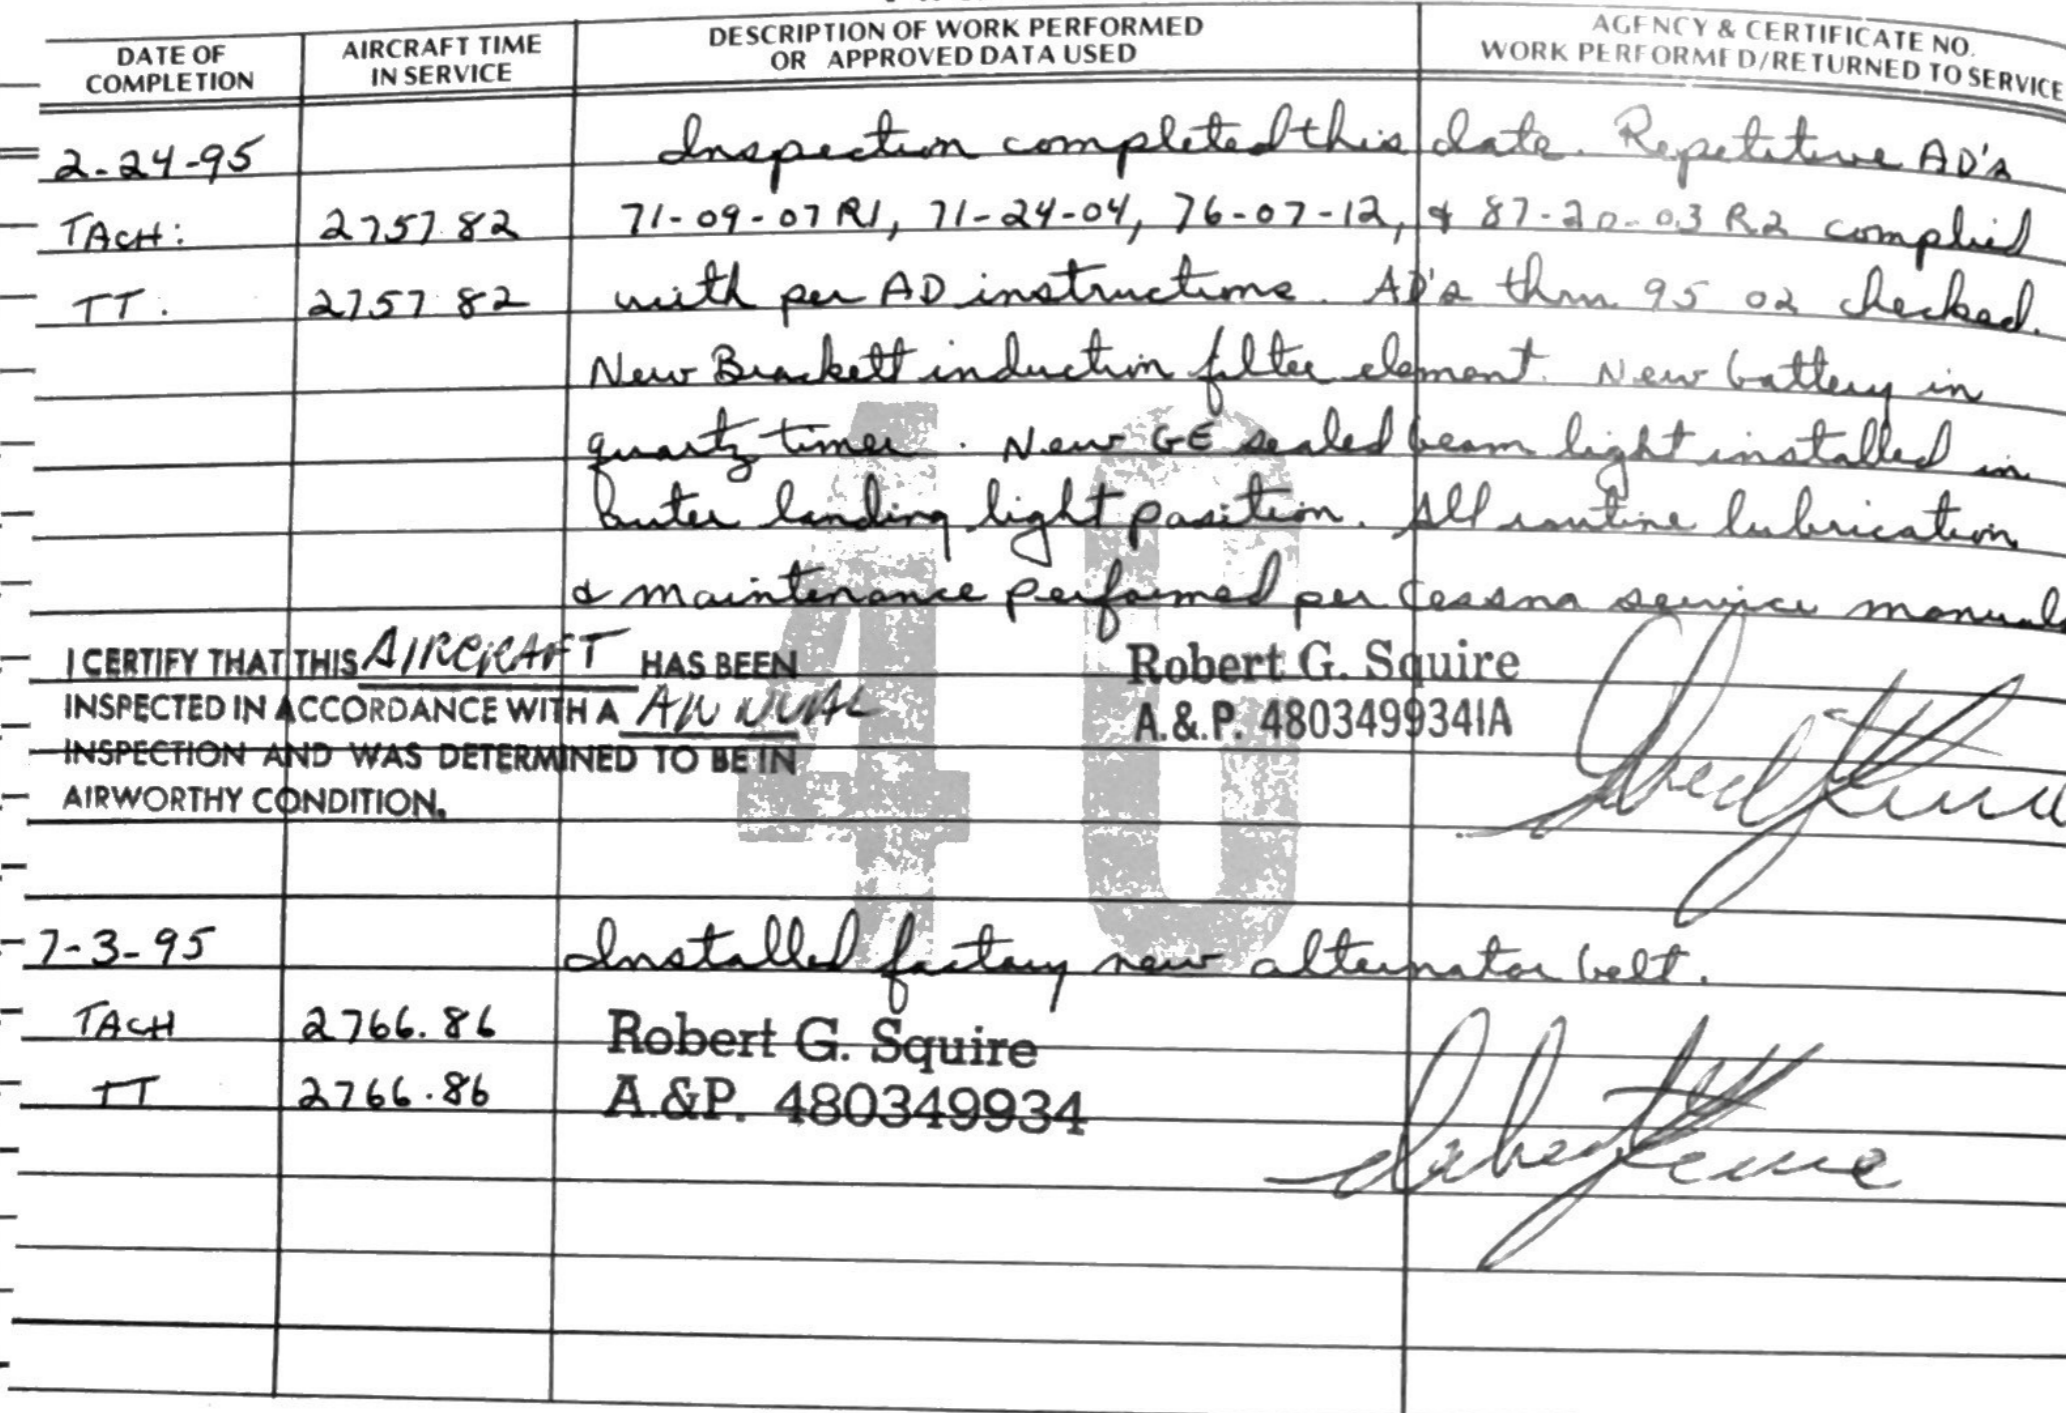 DATE OF COMPLETION AIRCRAFT TIME IN SERVICE DESCRIPTION OF WORK PERFORMED OR APPROVED DATA USED AGENCY & CERTIFICATE NO. WORK PERFORMED/RETURNED TO SERVICE
2-24-95 Inspection completed this date. Repetitive AD's
TACH: 2757.82 71-09-07 R1, 71-24-04, 76-07-12, & 87-20-03 R2 complied
TT: 2757.82 with per AD instructions. AD's thru 95 02 checked.
New Brackett induction filter element. New battery in
quartz timer. New GE sealed beam light installed in
outer landing light position. All routine lubrication
& maintenance performed per Cessna service manual
I CERTIFY THAT THIS AIRCRAFT HAS BEEN
INSPECTED IN ACCORDANCE WITH A ANNUAL
INSPECTION AND WAS DETERMINED TO BE IN
AIRWORTHY CONDITION.
Robert G. Squire
A.&.P. 480349934IA
7-3-95 Installed factory new alternator belt.
TACH 2766.86 Robert G. Squire
TT 2766.86 A.&P. 480349934
40